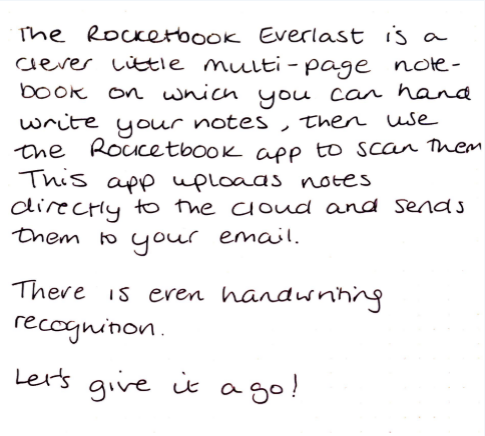 The Rocketbook Everlast is a
clever little multi-page note-
book on which you can hand
write your notes, then use
the Rocketbook app to scan them
This app uploads notes
directly to the cloud and sends
them to your email.
There is even handwriting
recognition.
Let's give it a go!